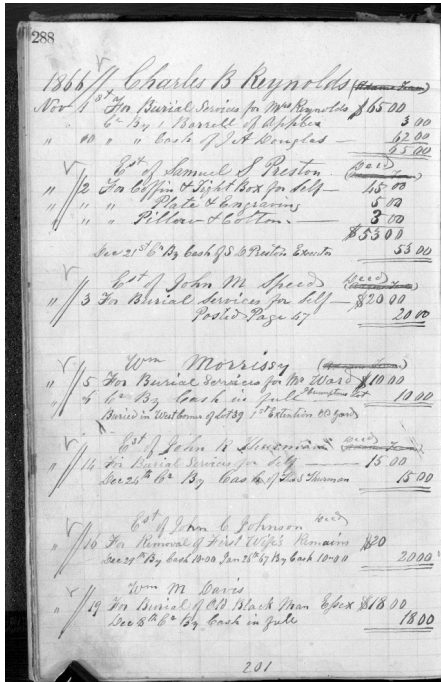 288
1866 Charles B Reynolds
Nov 1st For Burial Services for Mrs Reynolds $65 00
" Cr By 1 Barrell of Apples 3 00
" " " Cash of J H Douglas 62 00
65 00
Est of Samuel S. Preston. (Decd)
" 2 For Coffin & Tight Box for Self 45 00
" " " Plate & Engraving 5 00
" " " Pillow & Cotton. 3 00
$53 00
Dec 21st Cr By Cash of S Preston Executor 53 00
Est of John M Speed (Decd)
" 3 For Burial Services for Self $20 00
Posted Page 47 20 00
Wm Morrissy
" 5 For Burial Services for Mr Ward $10 00
" 6 Cr By Cash in full 10 00
Buried in West corner of Lot 39 1st Extention Old yard
Est of John R Decd
" 14 For Burial Services for Self 15 00
Dec 24th Cr By Cash of Thurman 15 00
Est of John C Johnson Decd
" 16 For Removal of First Wife's Remains $20
Dec 29th By Cash 10.00 Jan 26th 67 By Cash 10.00 20 00
Wm M Davis
" 19 For Burial of Old Black Man Essex $18 00
Dec 8th Cr By Cash in full 18 00
201